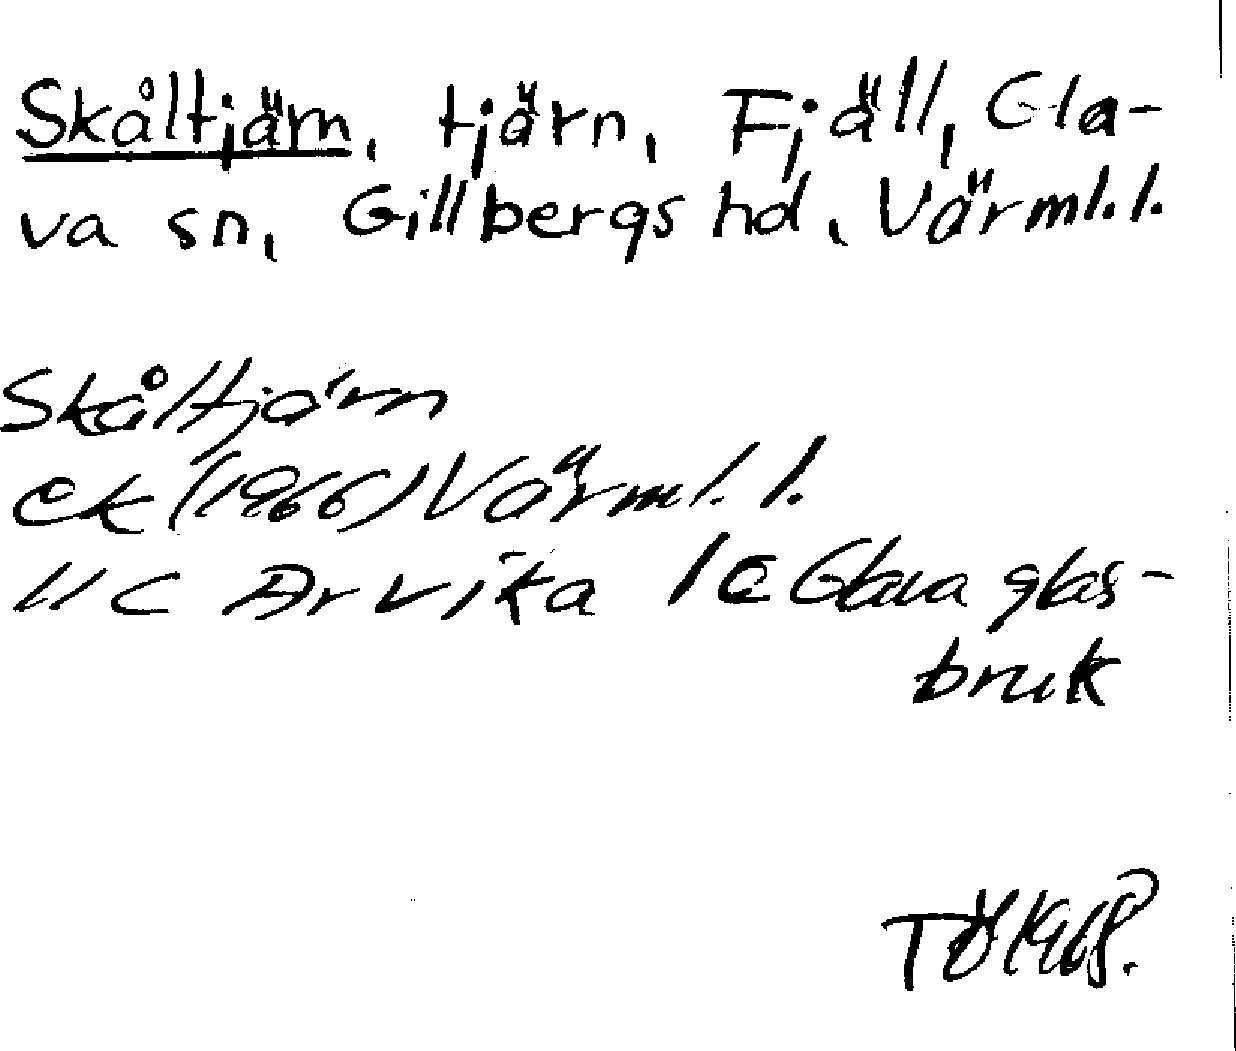 Skåltjärn, tjärn, Fjäll, Gla-
va sn, Gillbergs hd, Värml. l.
Skåltjärn
ek (1966) Värml. l.
11 C Arvika 1 c Glava glas-
bruk
TÖ 1968.